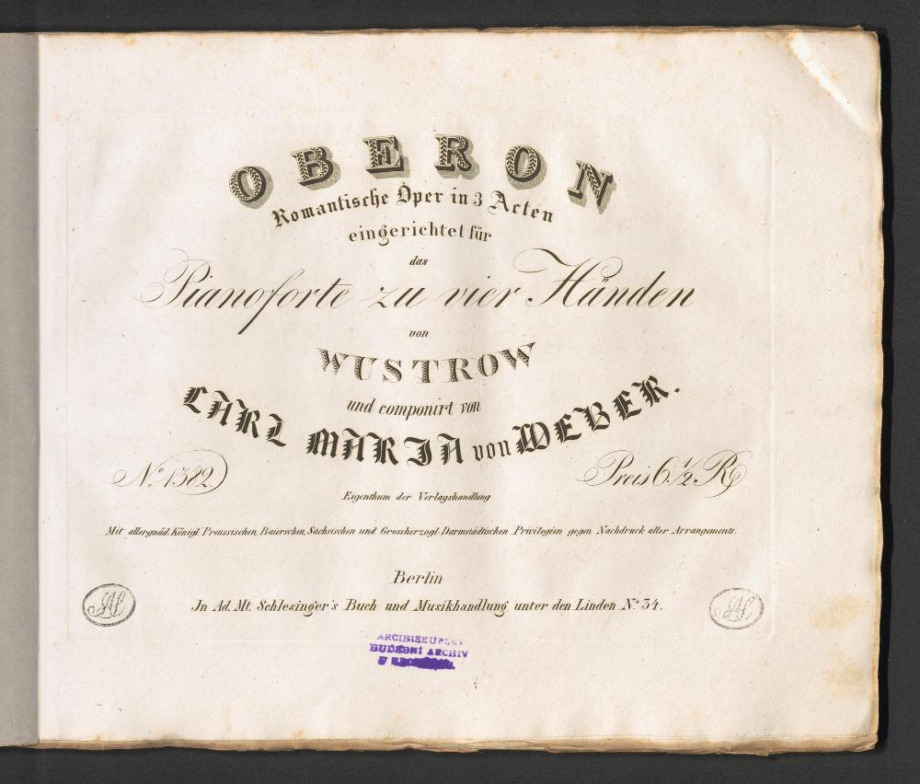 OBERON
Romantische Oper in 3 Acten
eingerichtet für
das
Pianoforte zu vier Händen
von
WUSTROW
und componirt von
CARL MARIA von WEBER.
No. 1382
Preis 6 1/2 R
Eigenthum der Verlagshandlung
Mit allergnäd. Königl. Preussischen, Baierschen, Sächsischen und Grossherzogl. Darmstädtischen Privilegien gegen Nachdruck aller Arrangements.
Berlin
In Ad. Mt. Schlesinger's Buch und Musikhandlung unter den Linden No. 34.
ARCIBISKUPSKÝ
HUDEBNÍ ARCHIV